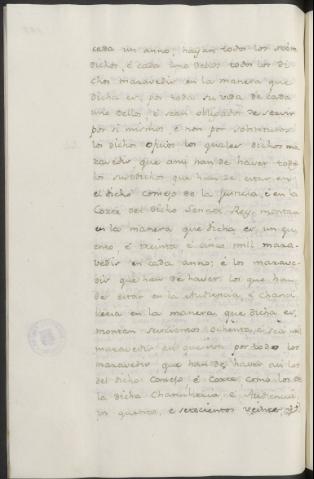 cada un anno, hayan todos los sobre
dichos, é cada uno dellos todos los di
chos maravedis en la manera que
dicha es, por toda su vida de cada
uno dellos, é sean obligados de servir
por si mismos, é non por sobstitutos
los dichos oficios los quales dichos ma
ravedis que ansi han de haver todos
los susodichos que han de estar en
el dicho consejo de la Justicia, é en la
Corte del dicho Sennor Rey, montan
en la manera que dicha es, un qu
ento, é treinta é cinco mill mara
vedis en cada anno; é los marave
dis que han de haver los que han
de estar en la Audiencia, é Chanci
lleria en la manera que dicha es,
montan seiscientos ochenta, é seis mill
maravedis en que son por todos los
maravedis que han de haver asi los
del dicho Consejo é Corte, como los de
la dicha Chancilleria, é Audiencia,
un quento, é setecientos veinte